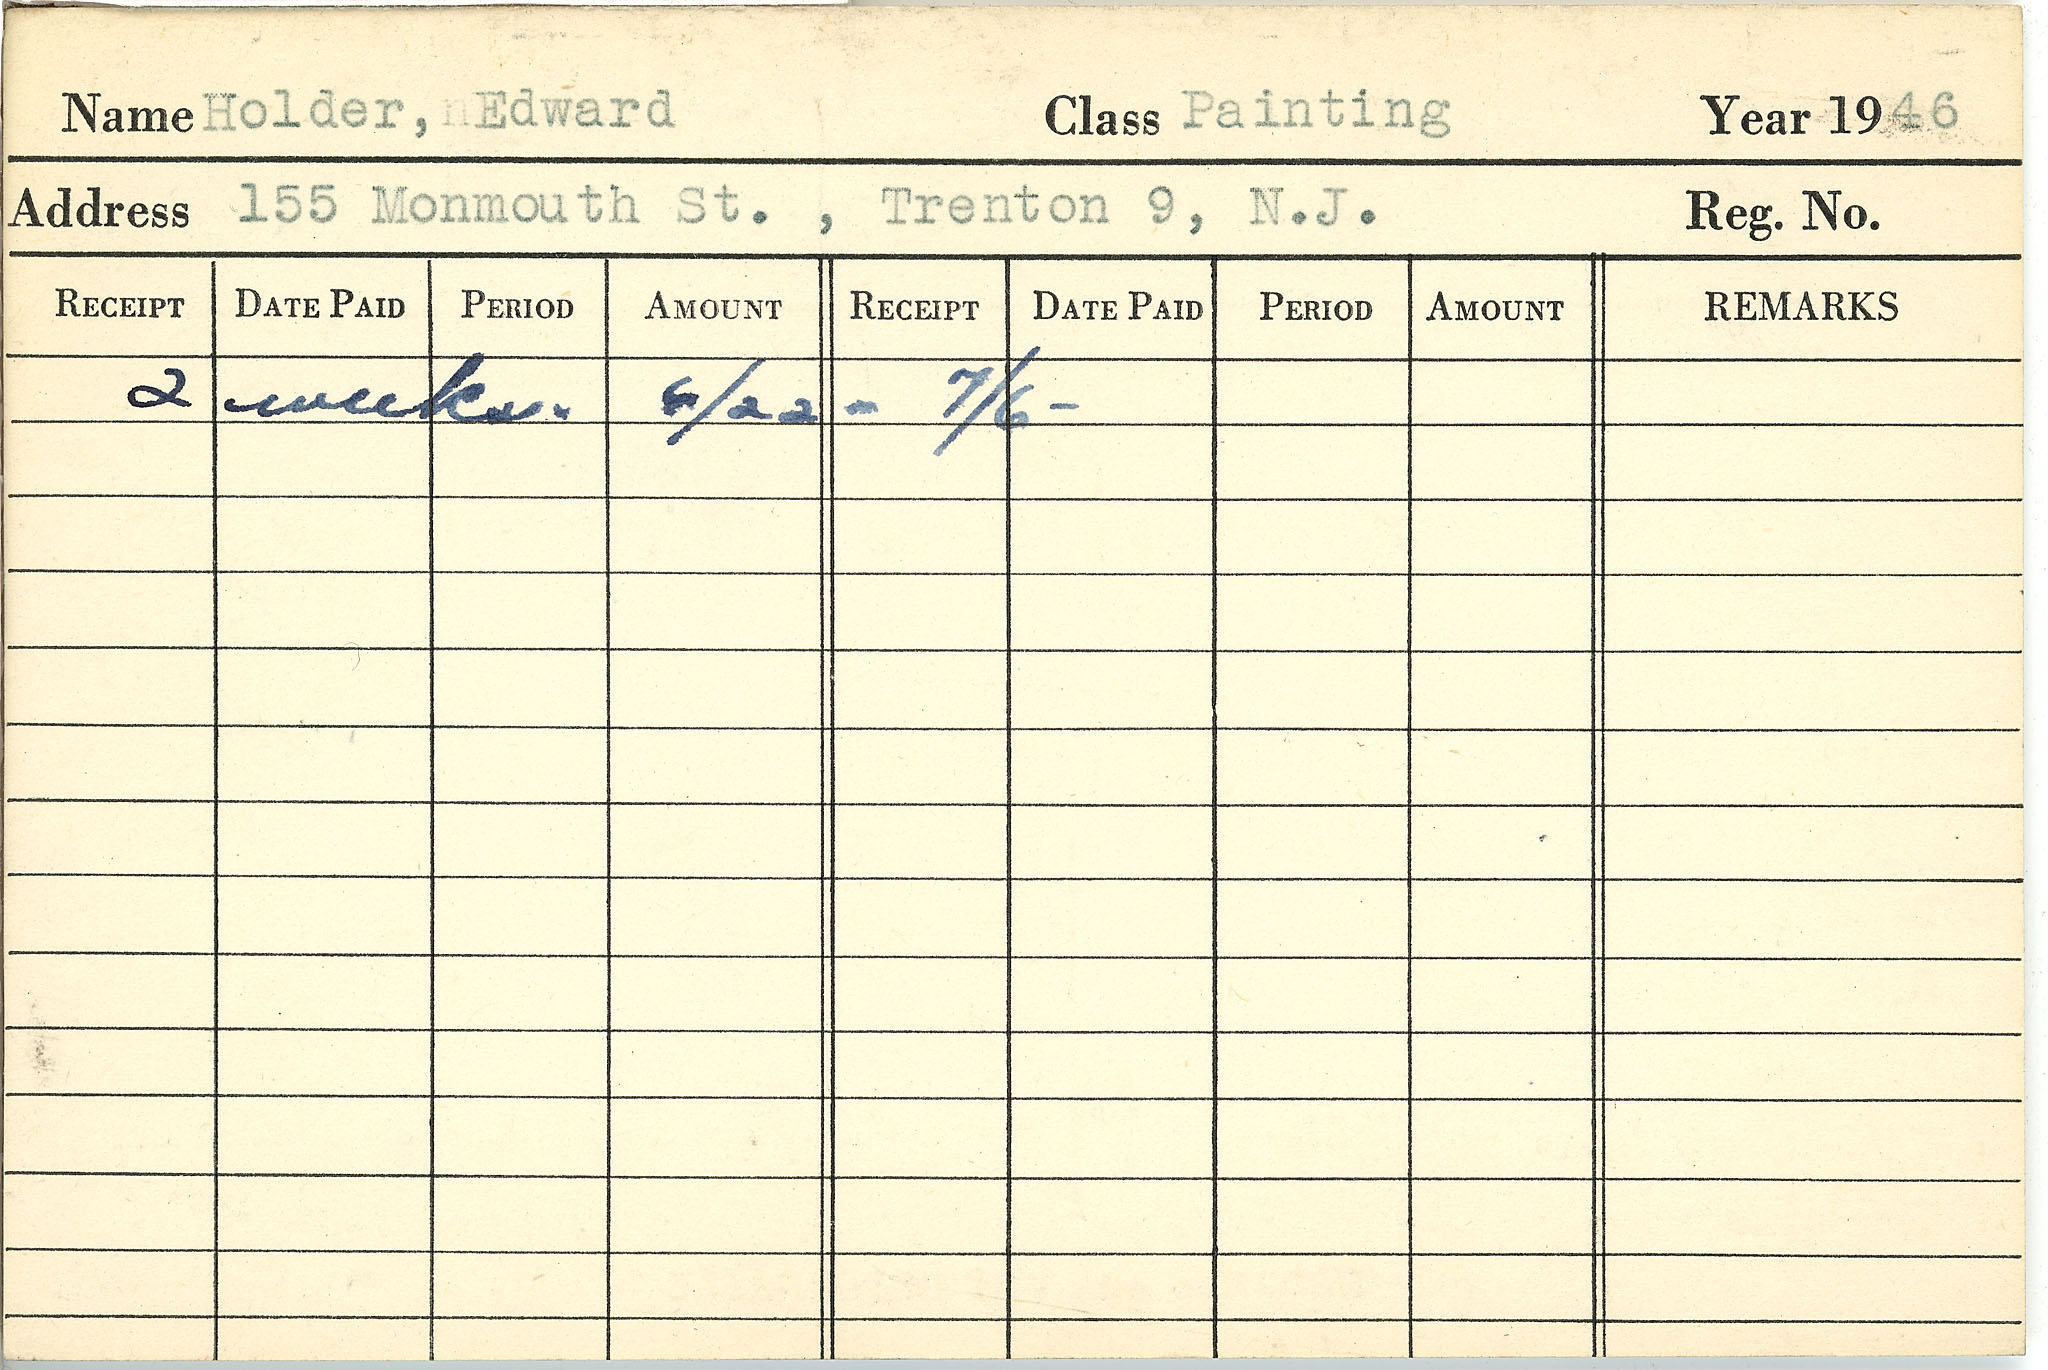 Name Holder, Edward Class Painting Year 1946
Address 155 Monmouth St. , Trenton 9, N.J. Reg. No.
RECEIPT DATE PAID PERIOD AMOUNT RECEIPT DATE PAID PERIOD AMOUNT REMARKS
2 weeks. 6/22 - 7/6 -